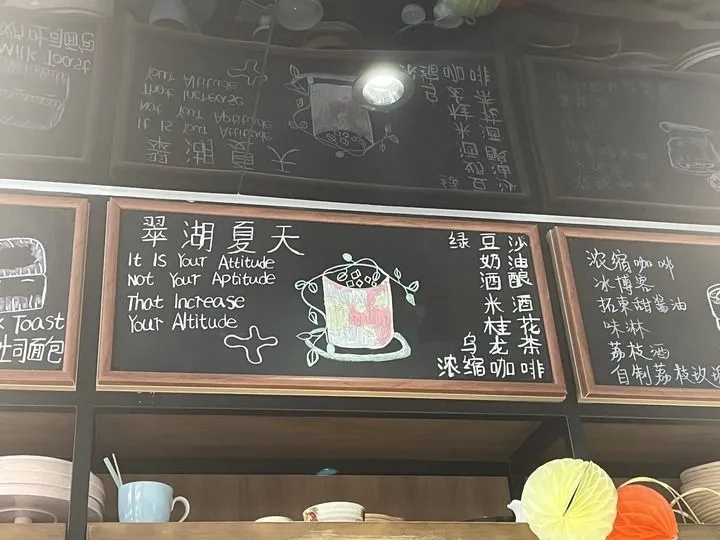 翠湖夏天
It Is Your Attitude
Not Your Aptitude
That Increase
Your Altitude
绿豆沙
奶油
酒酿
米酒
桂花
乌龙茶
浓缩咖啡
Toast
吐司面包
浓缩咖啡
冰博客
拓東甜酱油
味淋
荔枝酒
自制荔枝